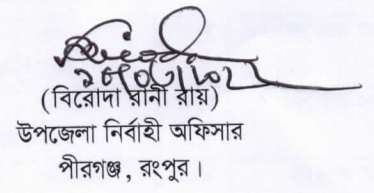 (বিরোদা রানী রায়)
উপজেলা নির্বাহী অফিসার
পীরগঞ্জ, রংপুর।